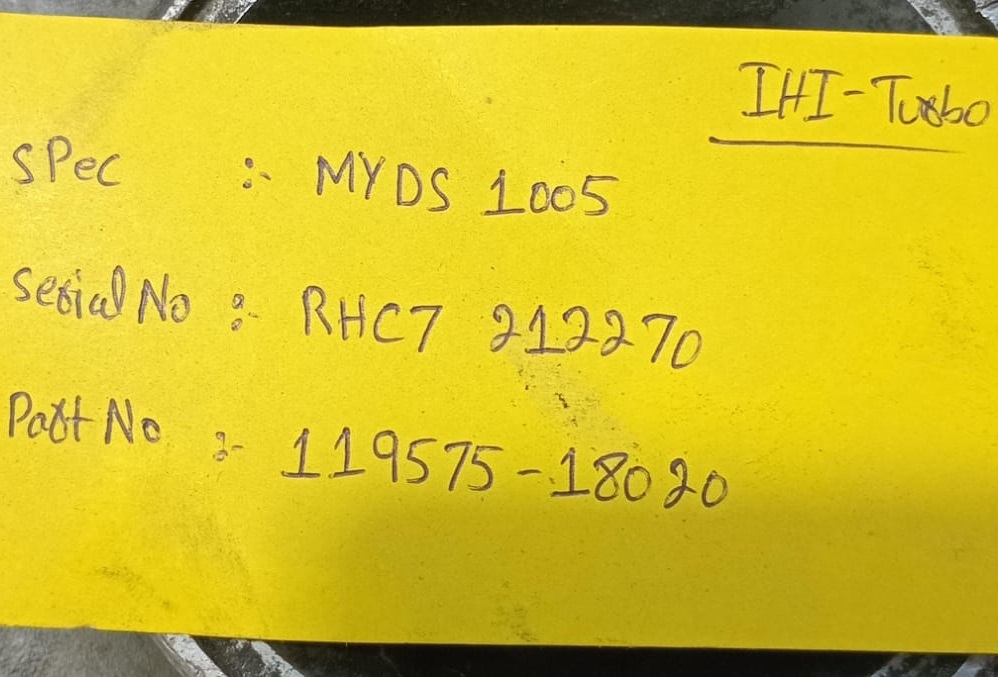 IHI-Turbo
SPec :- MYDS 1005
Serial No :- RHC7 212270
Part No :- 119575-18020